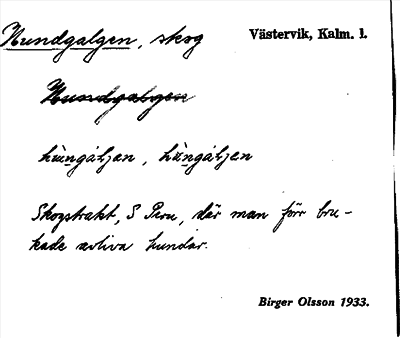 Hundgalgen, skog Västervik, Kalm. l.
Hundgalgen
hùngáljen, hùngáljen
Skogstrakt, S Peru, där man förr bru-
kade avliva hundar.
Birger Olsson 1933.